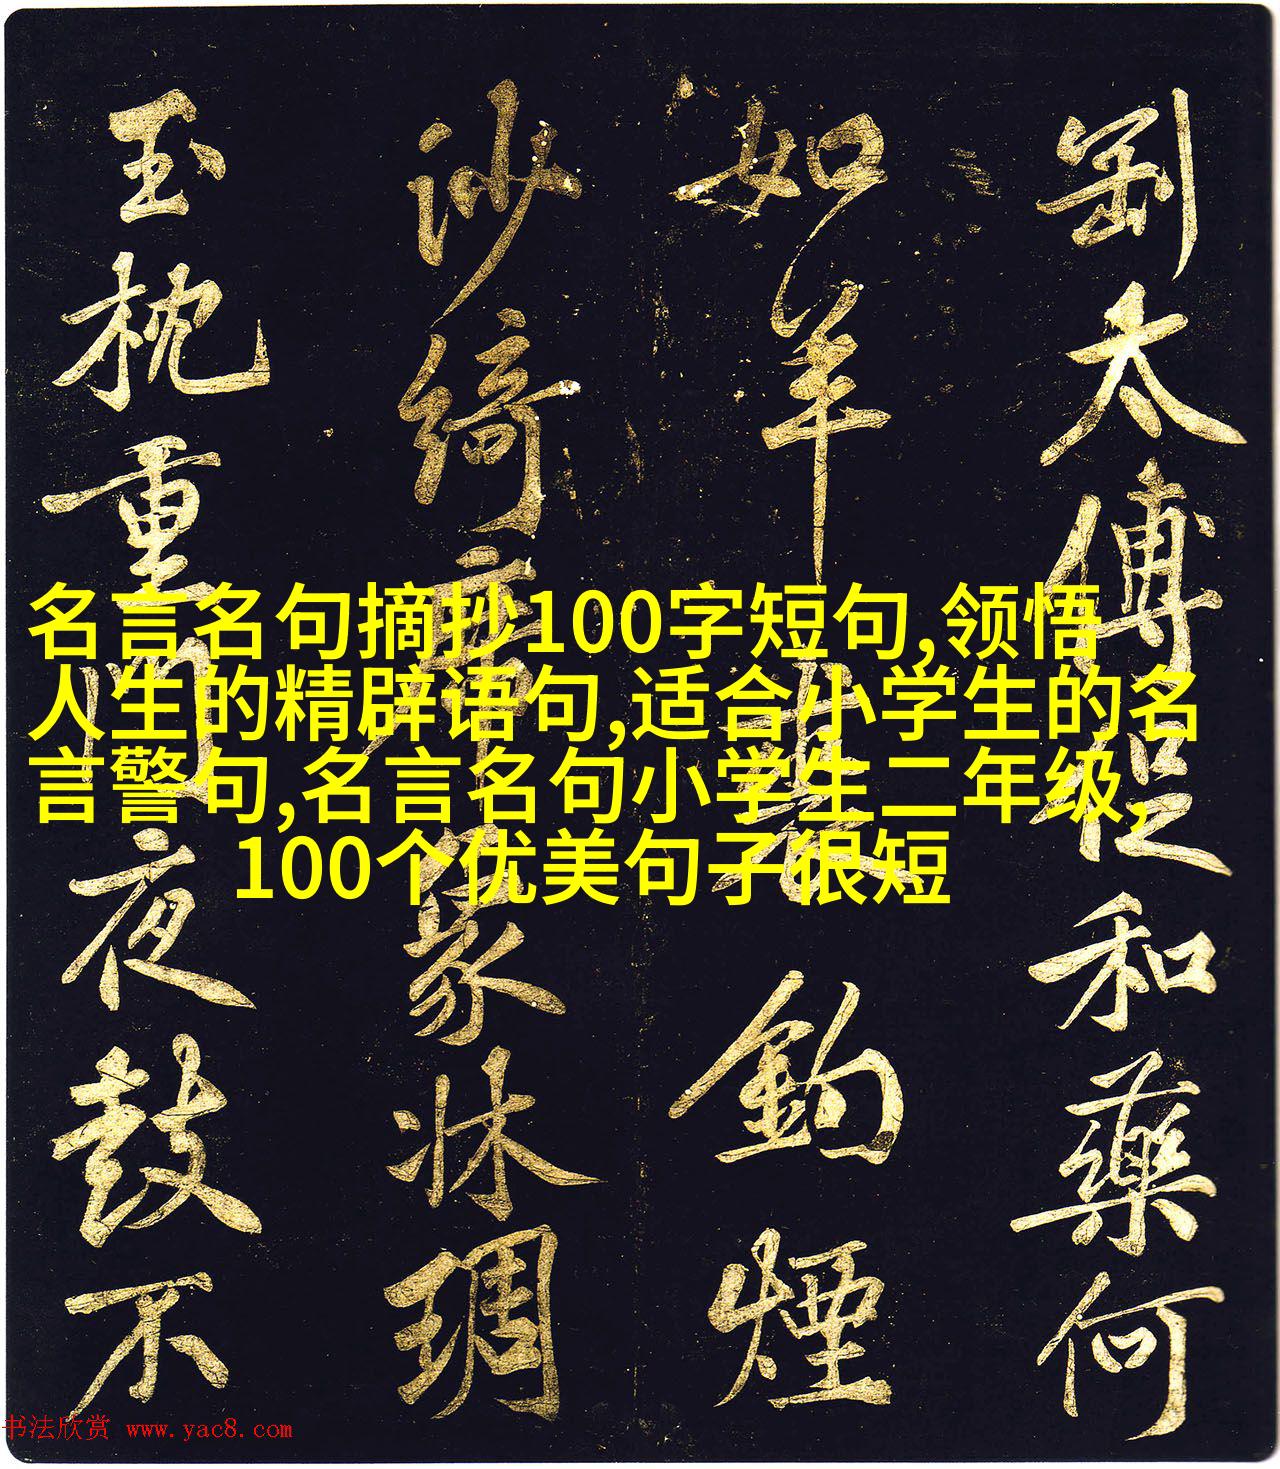 太傅但和藥何
如羊鈞煙
綺席篆牀琱
玉枕重夜鼓不
名言名句摘抄100字短句,领悟
人生的精辟语句,适合小学生的名
言警句,名言名句小学生二年级,
100个优美句子很短
书法欣赏 www.yac8.com